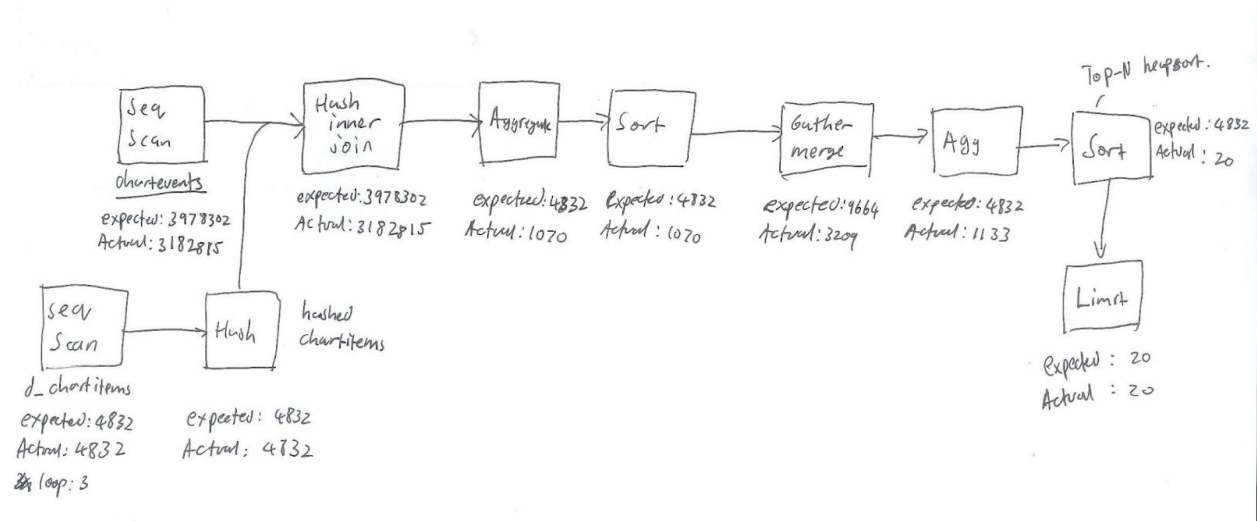 Top-N heapsort.
Seq
Scan
chartevents
expected: 3978302
Actual: 3182815
Hash
inner
join
expected: 3978302
Actual: 3182815
Aggregate
expected: 4832
Actual: 1070
Sort
Expected: 4832
Actual: 1070
Gather
merge
expected: 9664
Actual: 3209
Agg
expected: 4832
Actual: 1133
Sort
expected: 4832
Actual: 20
Limit
Expected : 20
Actual : 20
Seq
Scan
d_chartitems
expected: 4832
Actual: 4832
loop: 3
Hash
hashed
chartitems
expected: 4832
Actual: 4832